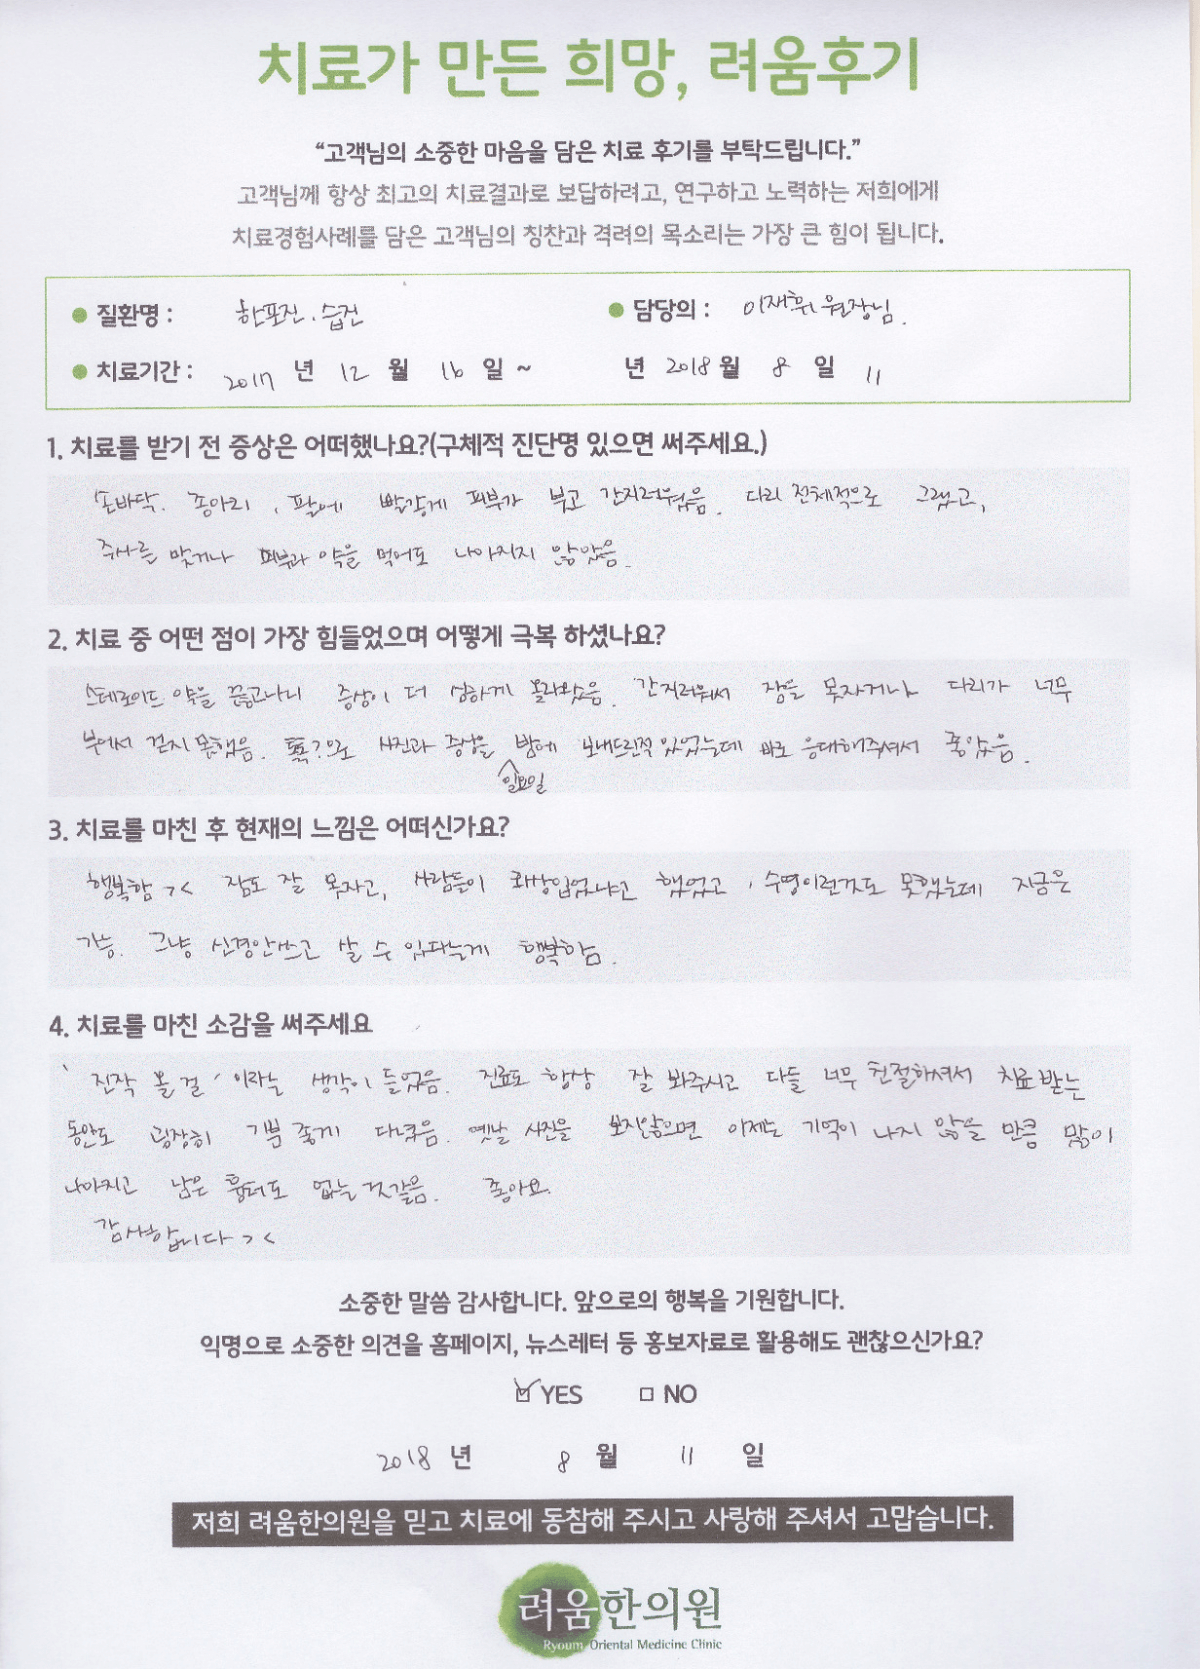 치료가 만든 희망, 려움후기
“고객님의 소중한 마음을 담은 치료 후기를 부탁드립니다.”
고객님께 항상 최고의 치료결과로 보답하려고, 연구하고 노력하는 저희에게
치료경험사례를 담은 고객님의 칭찬과 격려의 목소리는 가장 큰 힘이 됩니다.
질환명 : 한포진. 습진 담당의 : 이재휘 원장님.
치료기간 : 2017 년 12 월 16 일 ~ 년 2018 월 8 일 11
1. 치료를 받기 전 증상은 어떠했나요?(구체적 진단명 있으면 써주세요.)
손바닥. 종아리, 팔에 빨갛게 피부가 붓고 간지러웠음. 다리 전체적으로 그랬고,
주사를 맞거나 피부과 약을 먹어도 나아지지 않았음.
2. 치료 중 어떤 점이 가장 힘들었으며 어떻게 극복 하셨나요?
스테로이드 약을 끊고나니 증상이 더 심하게 올라왔음. 간지러워서 잠을 못자거나 다리가 너무
부어서 걷지 못했음. 톡?으로 사진과 증상을 일요일 밤에 보내드린적 있었는데 바로 응대해주셔서 좋았음.
3. 치료를 마친 후 현재의 느낌은 어떠신가요?
행복함 >< 잠도 잘 못자고, 사람들이 화상입었냐고 했었고, 수영이런것도 못했는데 지금은
가능. 그냥 신경안쓰고 살 수 있다는게 행복함.
4. 치료를 마친 소감을 써주세요
'진작 올 걸' 이라는 생각이 들었음. 진료도 항상 잘 봐주시고 다들 너무 친절하셔서 치료 받는
동안도 굉장히 기분 좋게 다녔음. 옛날 사진을 보지않으면 이제는 기억이 나지 않을 만큼 많이
나아지고 남은 흉터도 없는 것 같음. 좋아요.
감사합니다 ><
소중한 말씀 감사합니다. 앞으로의 행복을 기원합니다.
익명으로 소중한 의견을 홈페이지, 뉴스레터 등 홍보자료로 활용해도 괜찮으신가요?
☑ YES □ NO
2018 년 8 월 11 일
저희 려움한의원을 믿고 치료에 동참해 주시고 사랑해 주셔서 고맙습니다.
려움한의원
Ryoum Oriental Medicine Clinic